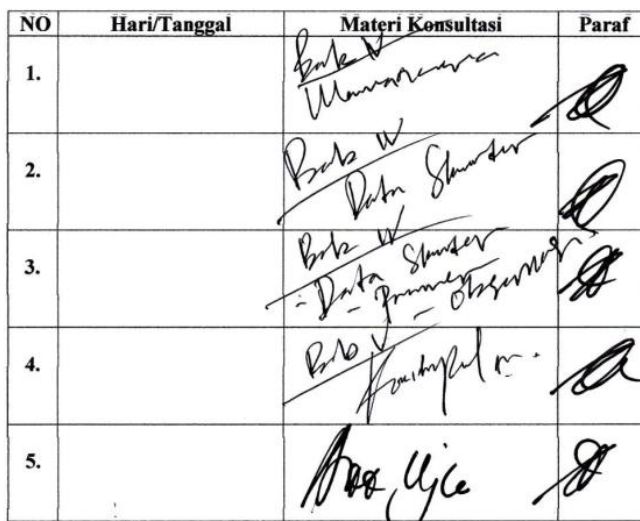 NO Hari/Tanggal Materi Konsultasi Paraf
1. Bab IV
2. Bab IV
Data Skunder
3. Bab IV
- Data Skunder
- Primer - Observasi
4. Bab V
Kesimpulan.
5. Acc Ujian